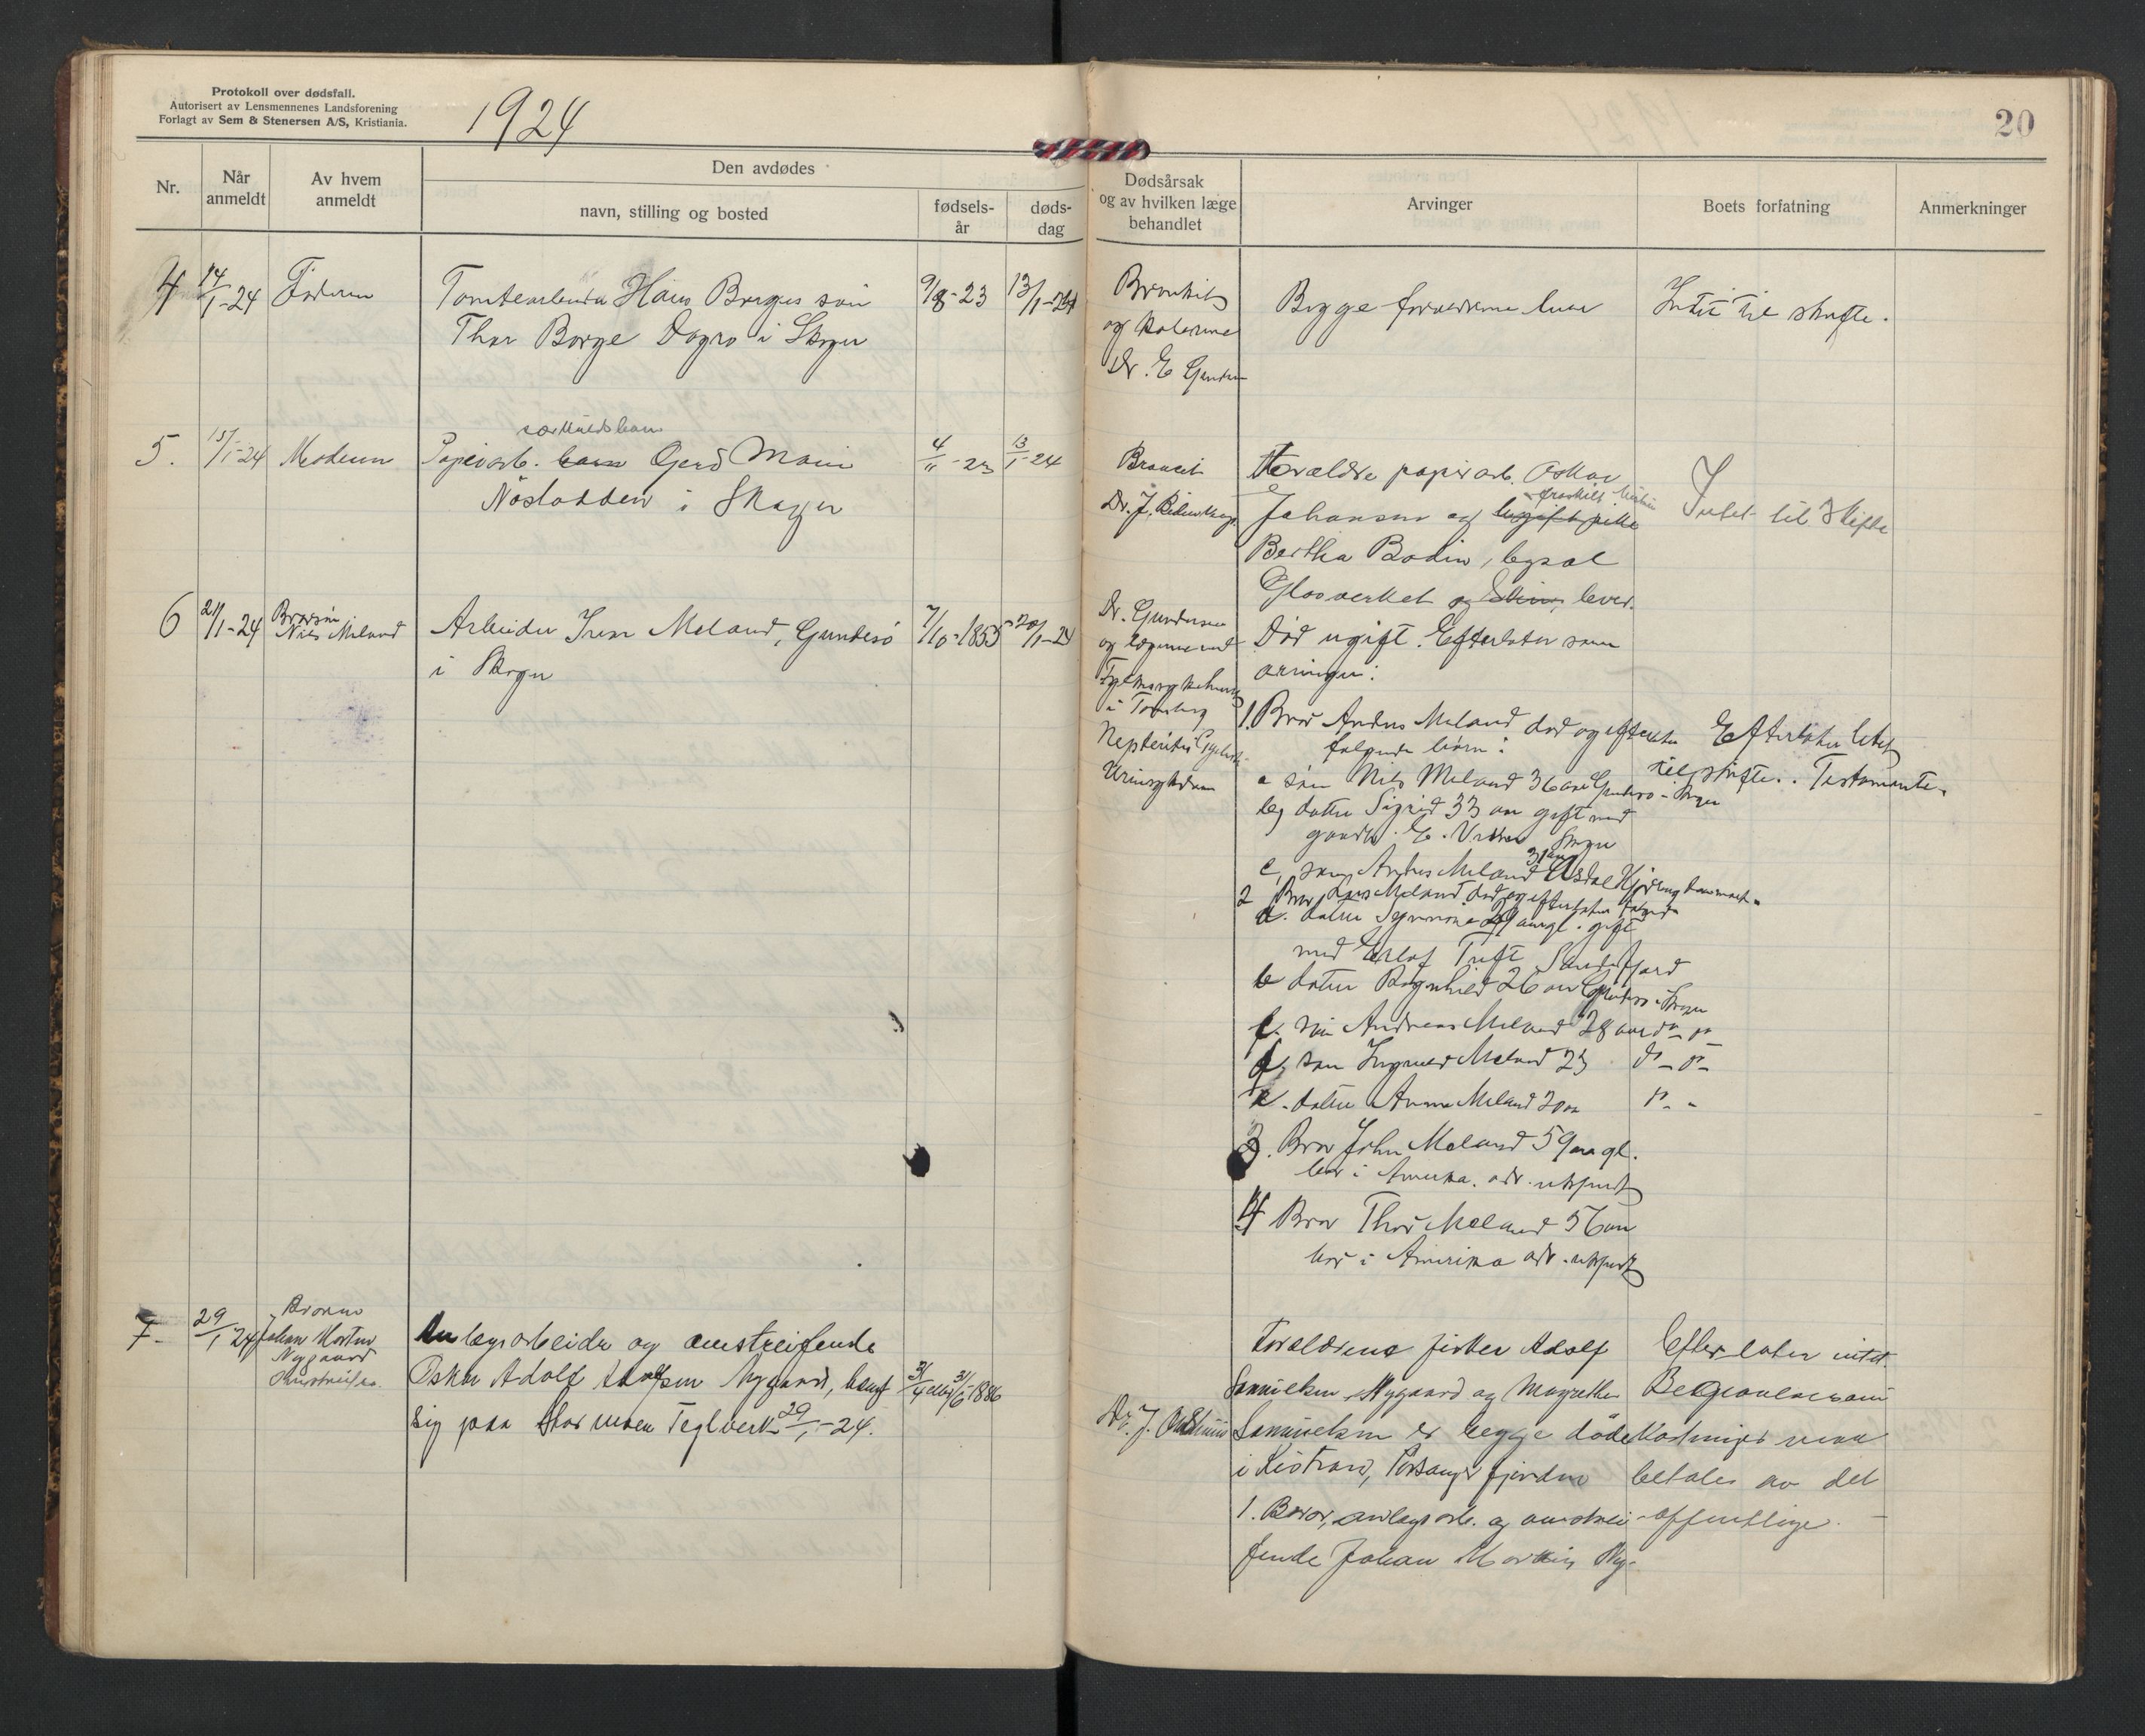 Protokoll over dødsfall.
Autorisert av Lensmennenes Landsforening
Forlagt av Sem & Stenersen A/S, Kristiania.
1924
20
Nr.
Når
anmeldt
Av hvem
anmeldt
Den avdødes
navn, stilling og bosted
fødsels-
år
døds-
dag
Dødsårsak
og av hvilken læge
behandlet
Arvinger
Boets forfatning
Anmerkninger
4
14/1-24
Faderen
Tomtearbeider Hans Borges søn
Thor Borge i Skoger
9/8-23
13/1-24
Bronkit
og
Dr. E
Begge forældrene lever
Intet til skifte.
5.
15/1-24
Moderen
særkuldsbarn
Papirarb. barn Gerd Marie
Nøstodden i Skoger
4/11-23
13/1-24
Dr. J.
Forældre papirarb. Oskar
fraskilt
Johansen og ugift pike
Bertha Bodin, bopæl
Glasverket og lever.
Intet til Skifte
6
21/1-24
Brorsøn
Nils Meland
Arbeider Iver Meland, Gundesø
i Skoger
7/10-1853
20/1-24
Dr. Gundersen
og lægerne ved
Fylkessykehuset
i Tønsberg
Død ugift. Efterlater som
arvinger:
1. Bror Anders Meland død og efterlater
følgende børn:
a søn Nils Meland 36 aar Gundesø - Skoger
b, datter Sigrid 33 aar gift med
gaardbr. E. Skoger
31 aar
c, søn Anders Meland
2 Bror Lars Meland død og efterlater følgende
a. datter 29 aar gl. gift
med Tuft Sandefjord
b datter Ragnhild 26 aar Gundesø i Skoger
c. søn Andreas Meland 28 aar do - do
d, søn Ingvald Meland 23 do - do -
e. datter Anna Meland 20 aar do - "
3. Bror John Meland 59 aar gl.
bor i Amerika. adr. ukjendt
4 Bror Thor Meland 56 aar
bor i Amerika adr. ukjendt
Efterlater litet
til skifte. Testamente.
7.
29/1-24
Broren
Johan Martin
Nygaard
Anlegsarbeider og omstreifende
Oskar Adolf Nygaard, hengt
sig paa Teglverk 29/1-24.
31/4 eller 31/6-1886
Dr. J.
Forældrene fisker Adolf
Samuelsen Nygaard og Magrethe
Samuelsen er begge døde
i Kistrand, Porsangerfjorden
1. Bror, anlegsarb. og omstrei-
fende Johan Martin Ny-
Efterlater intet
Begravelsesom
kostninger maa
betales av det
offentlige.